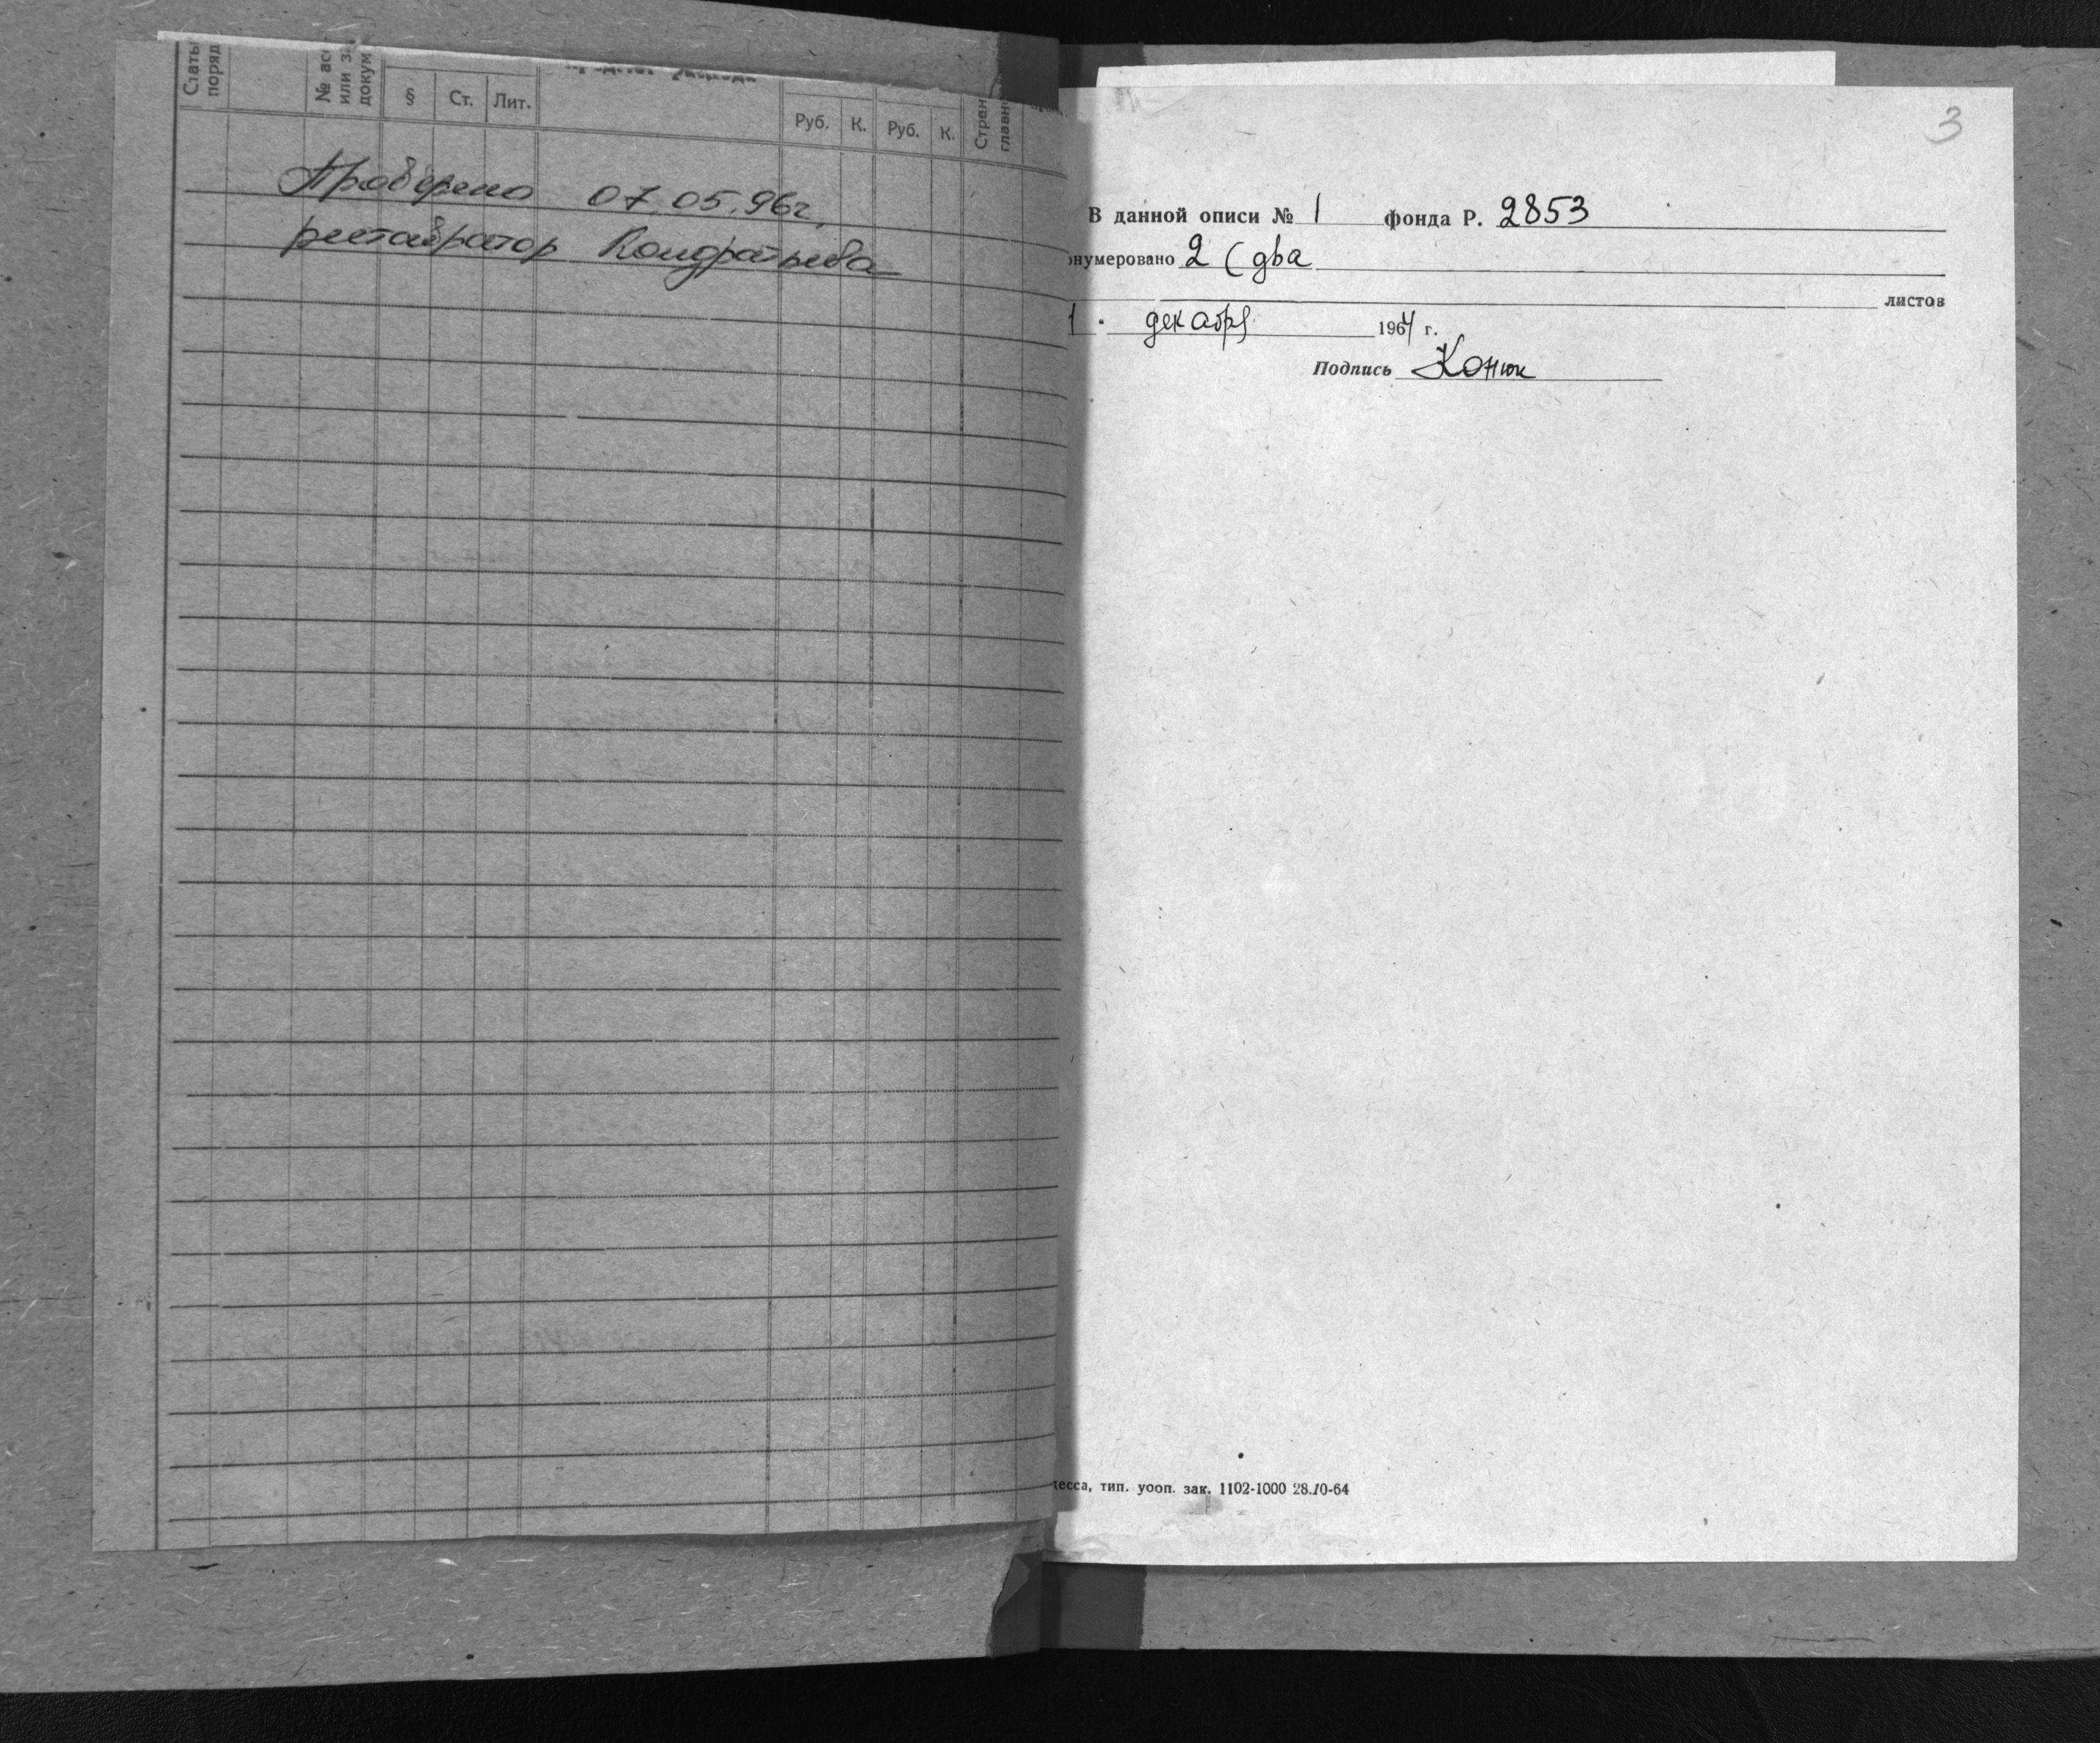 § Ст. Лит. Руб. К. Руб. К.
Проверено 07.05.96г.
реставратор Кондратьева
3
В данной описи № 1 фонда Р. 2853
онумеровано 2 (два
листов
1 " декабря 1964 г.
Подпись Конюк
десса, тип. уооп. зак. 1102-1000 28.10-64